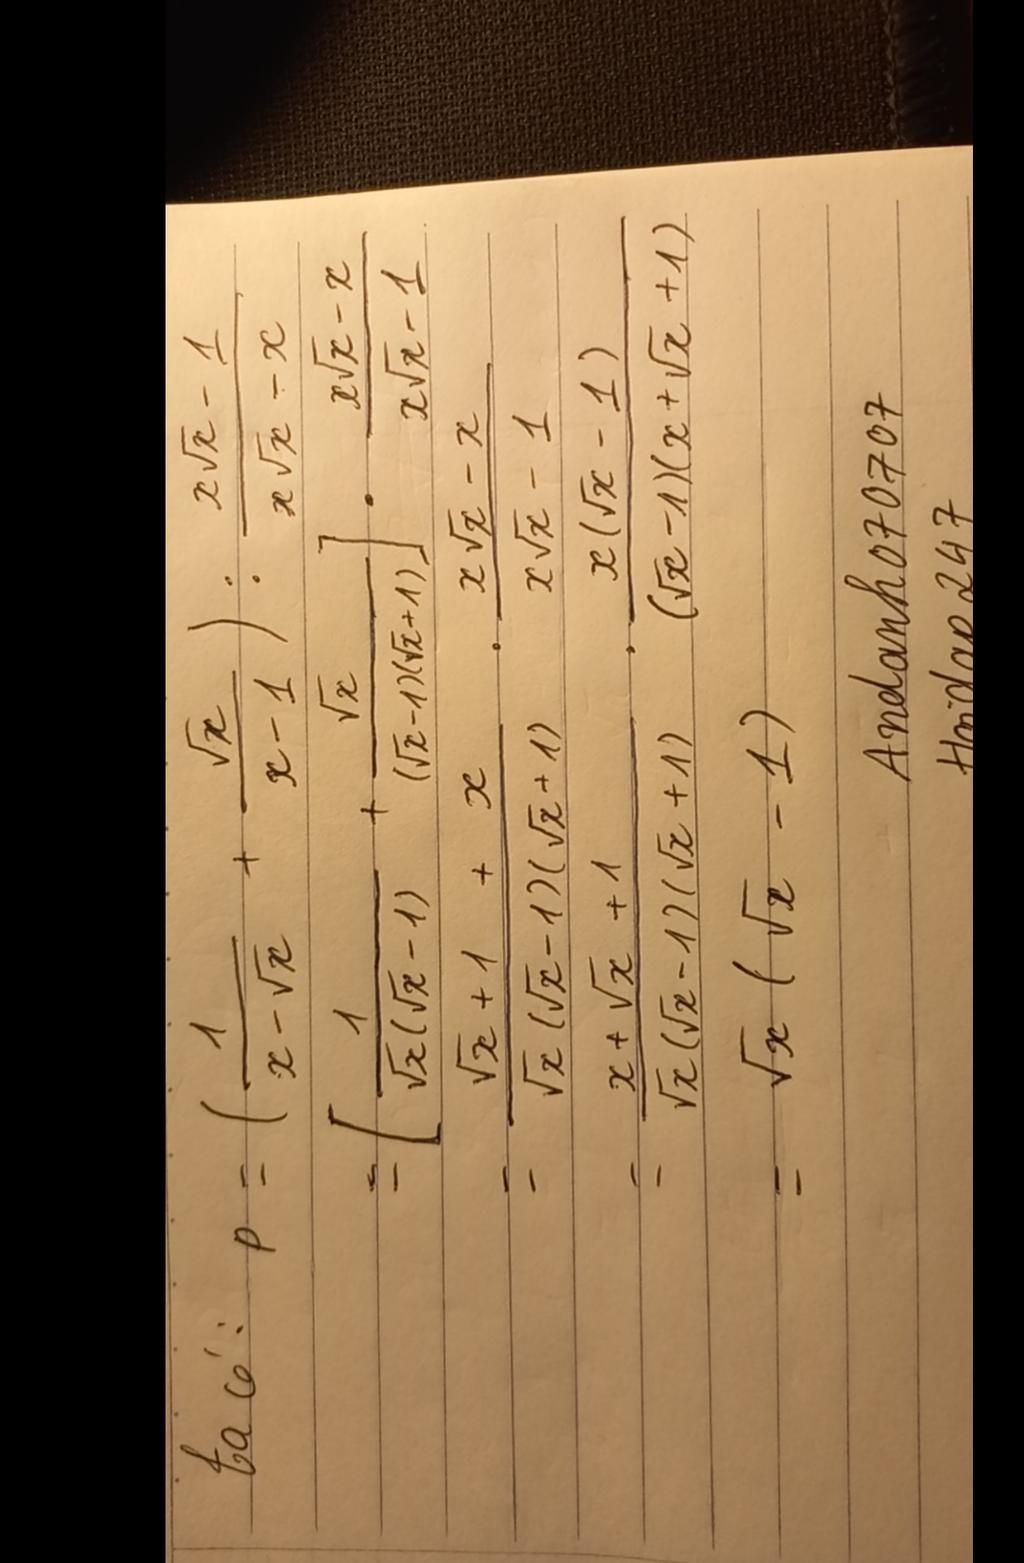 ta có: P = ( 1/(x - √x) + √x/(x - 1) ) : (x√x - 1)/(x√x - x)
= [ 1/(√x(√x - 1)) + √x/((√x - 1)(√x + 1)) ] . (x√x - x)/(x√x - 1)
= (√x + 1 + x)/(√x(√x - 1)(√x + 1)) . (x√x - x)/(x√x - 1)
= (x + √x + 1)/(√x(√x - 1)(√x + 1)) . x(√x - 1)/((√x - 1)(x + √x + 1))
= √x(√x - 1)
Andanh070707
Hoidap247